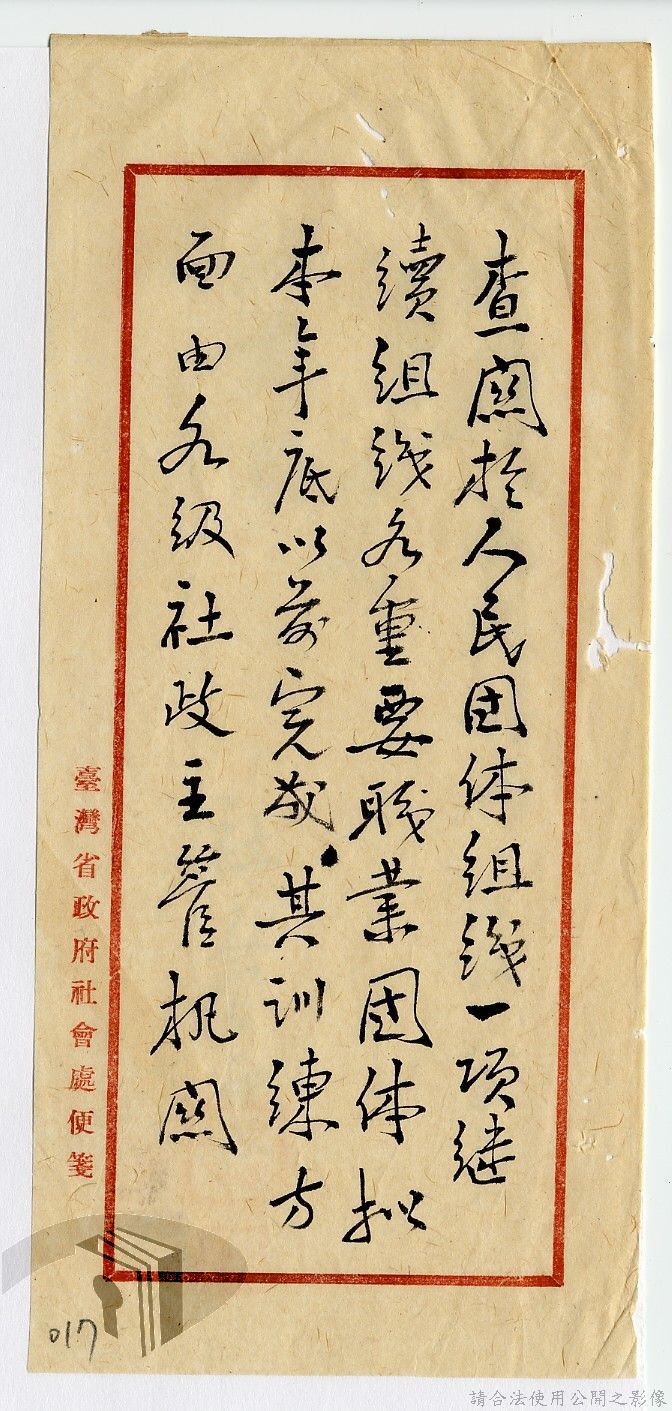 查關於人民团体組织一項继
續組织各重要職業团体拟
本年底以前完成其训練方
面由各级社政主管机關
臺灣省政府社會處便箋
017
請合法使用公開之影像